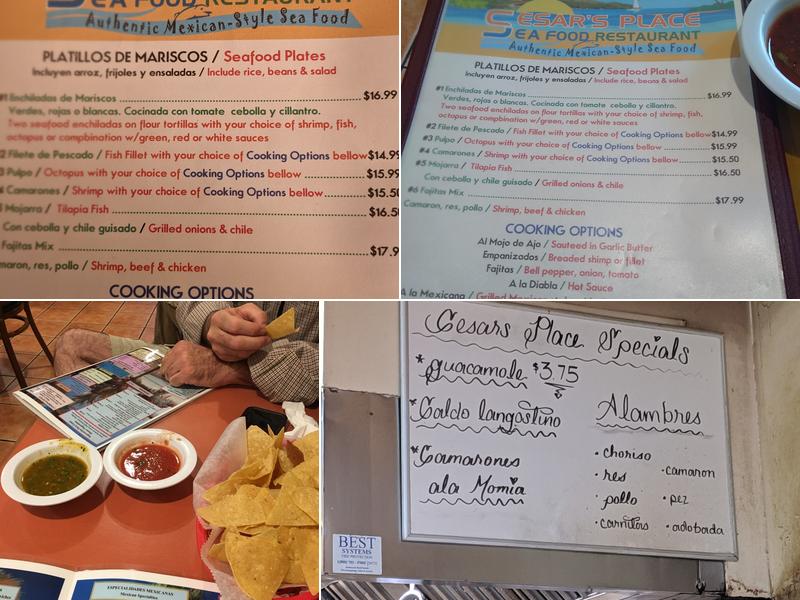 SEA FOOD RESTAURANT
Authentic Mexican-Style Sea Food
PLATILLOS DE MARISCOS / Seafood Plates
Incluyen arroz, frijoles y ensaladas / Include rice, beans & salad
#1 Enchiladas de Mariscos $16.99
Verdes, rojas o blancas. Cocinada con tomate cebolla y cillantro.
Two seafood enchiladas on flour tortillas with your choice of shrimp, fish,
octopus or compbination w/green, red or white sauces
2 Filete de Pescado / Fish Fillet with your choice of Cooking Options bellow $14.99
3 Pulpo / Octopus with your choice of Cooking Options bellow $15.99
4 Camarones / Shrimp with your choice of Cooking Options bellow $15.50
Mojarra / Tilapia Fish $16.5
Con cebolla y chile guisado / Grilled onions & chile
Fajitas Mix $17.9
maron, res, pollo / Shrimp, beef & chicken
COOKING OPTIONS
SESAR'S PLACE
SEA FOOD RESTAURANT
Authentic Mexican-Style Sea Food
PLATILLOS DE MARISCOS / Seafood Plates
Incluyen arroz, frijoles y ensaladas / Include rice, beans & salad
#1 Enchiladas de Mariscos $16.99
Verdes, rojas o blancas. Cocinada con tomate cebolla y cillantro.
Two seafood enchiladas on flour tortillas with your choice of shrimp, fish,
octopus or compbination w/green, red or white sauces
#2 Filete de Pescado / Fish Fillet with your choice of Cooking Options bellow $14.99
#3 Pulpo / Octopus with your choice of Cooking Options bellow $15.99
#4 Camarones / Shrimp with your choice of Cooking Options bellow $15.50
#5 Mojarra / Tilapia Fish $16.50
Con cebolla y chile guisado / Grilled onions & chile
#6 Fajitas Mix $17.99
Camaron, res, pollo / Shrimp, beef & chicken
COOKING OPTIONS
Al Mojo de Ajo / Sauteed in Garlic Butter
Empanizados / Breaded shimp or fillet
Fajitas / Bell pepper, onion, tomato
A la Diabla / Hot Sauce
A la Mexicana / Grilled
ESPECIALIDADES MEXICANAS
Mexican Specialties
Cesars Place Specials
* guacamole $3.75
* Caldo langostino
* Camarones
ala Momia
Alambres
• choriso
• res
• pollo
• carnitas
• camaron
• pez
• adobada
BEST
SYSTEMS
FIRE PROTECTION